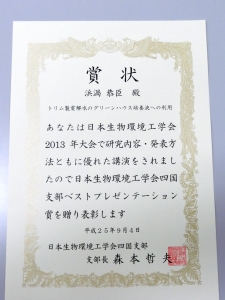 賞状
浜渦 恭臣 殿
トリム製電解水のグリーンハウス培養液への利用
あなたは日本生物環境工学会
2013 年大会で研究内容・発表方
法ともに優れた講演をされまし
たので日本生物環境工学会四国
支部ベストプレゼンテーション
賞を贈り表彰します
平成25年9月4日
日本生物環境工学会四国支部
支部長 森本哲夫